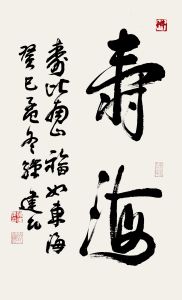 壽海
壽比南山 福如東海
癸巳孟冬 建